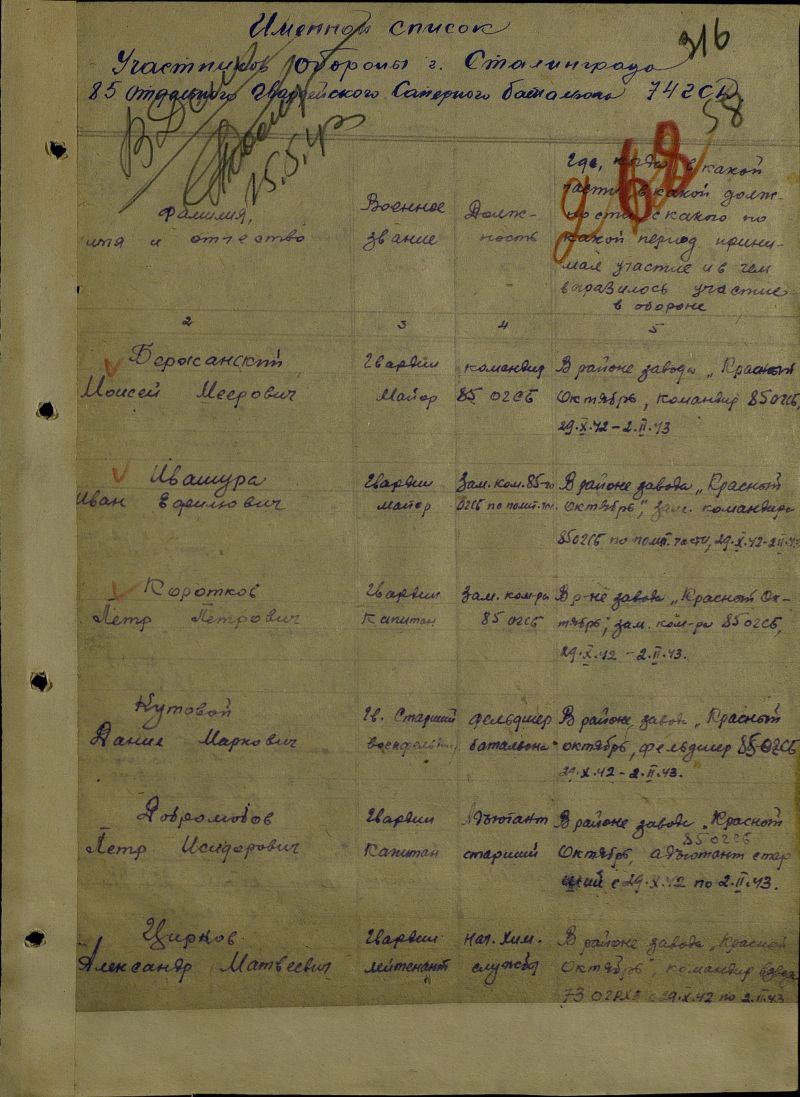 Именной список
316
Участников обороны г. Сталинграда
85 отдельного Гвардейского Саперного батальона 74 ГСД
58
15.5.43
68
Фамилия,
имя и отчество
Военное
звание
Долж-
ность
Где, когда, в какой
части, в какой долж-
ности с какого по
какой период прини-
мал участие и в чем
выразилось участие
в обороне
2 3 4 5
Бережанский
Моисей Меерович
Гвардии
Майор
командир
85 ОГСБ
В районе завода „Красный
Октябрь", командир 85 ОГСБ,
29.X.42 – 2.II.43
Ивашура
Иван Ефимович
Гвардии
майор
Зам. ком. 85-го
ОГСБ по полит.
В районе завода „Красный
Октябрь", зам. командира
85 ОГСБ по полит. части, 29.X.42-2.II.43
Коротков
Петр Петрович
Гвардии
Капитан
Зам. ком-ра
85 ОГСБ
В р-не завода „Красный Ок-
тябрь", зам. ком-ра 85 ОГСБ,
29.X.42 – 2.II.43.
Кутовой
Данил Маркович
Гв. Старший
военфельдшер
фельдшер
батальона
В районе завода „Красный
октябрь, фельдшер 85 ОГСБ
29.X.42 – 2.II.43.
Петр Исидорович
Гвардии
Капитан
Адъютант
старший
В районе завода „Красный
85 ОГСБ
Октябрь, адъютант стар
ший с 29.X.42 по 2.II.43.
Цирков
Александр Матвеевич
Гвардии
лейтенант
Нач. Хим.
службы
В районе завода „Красный
Октябрь", командир взвода
73 с 29.X.42 по 2.II.43